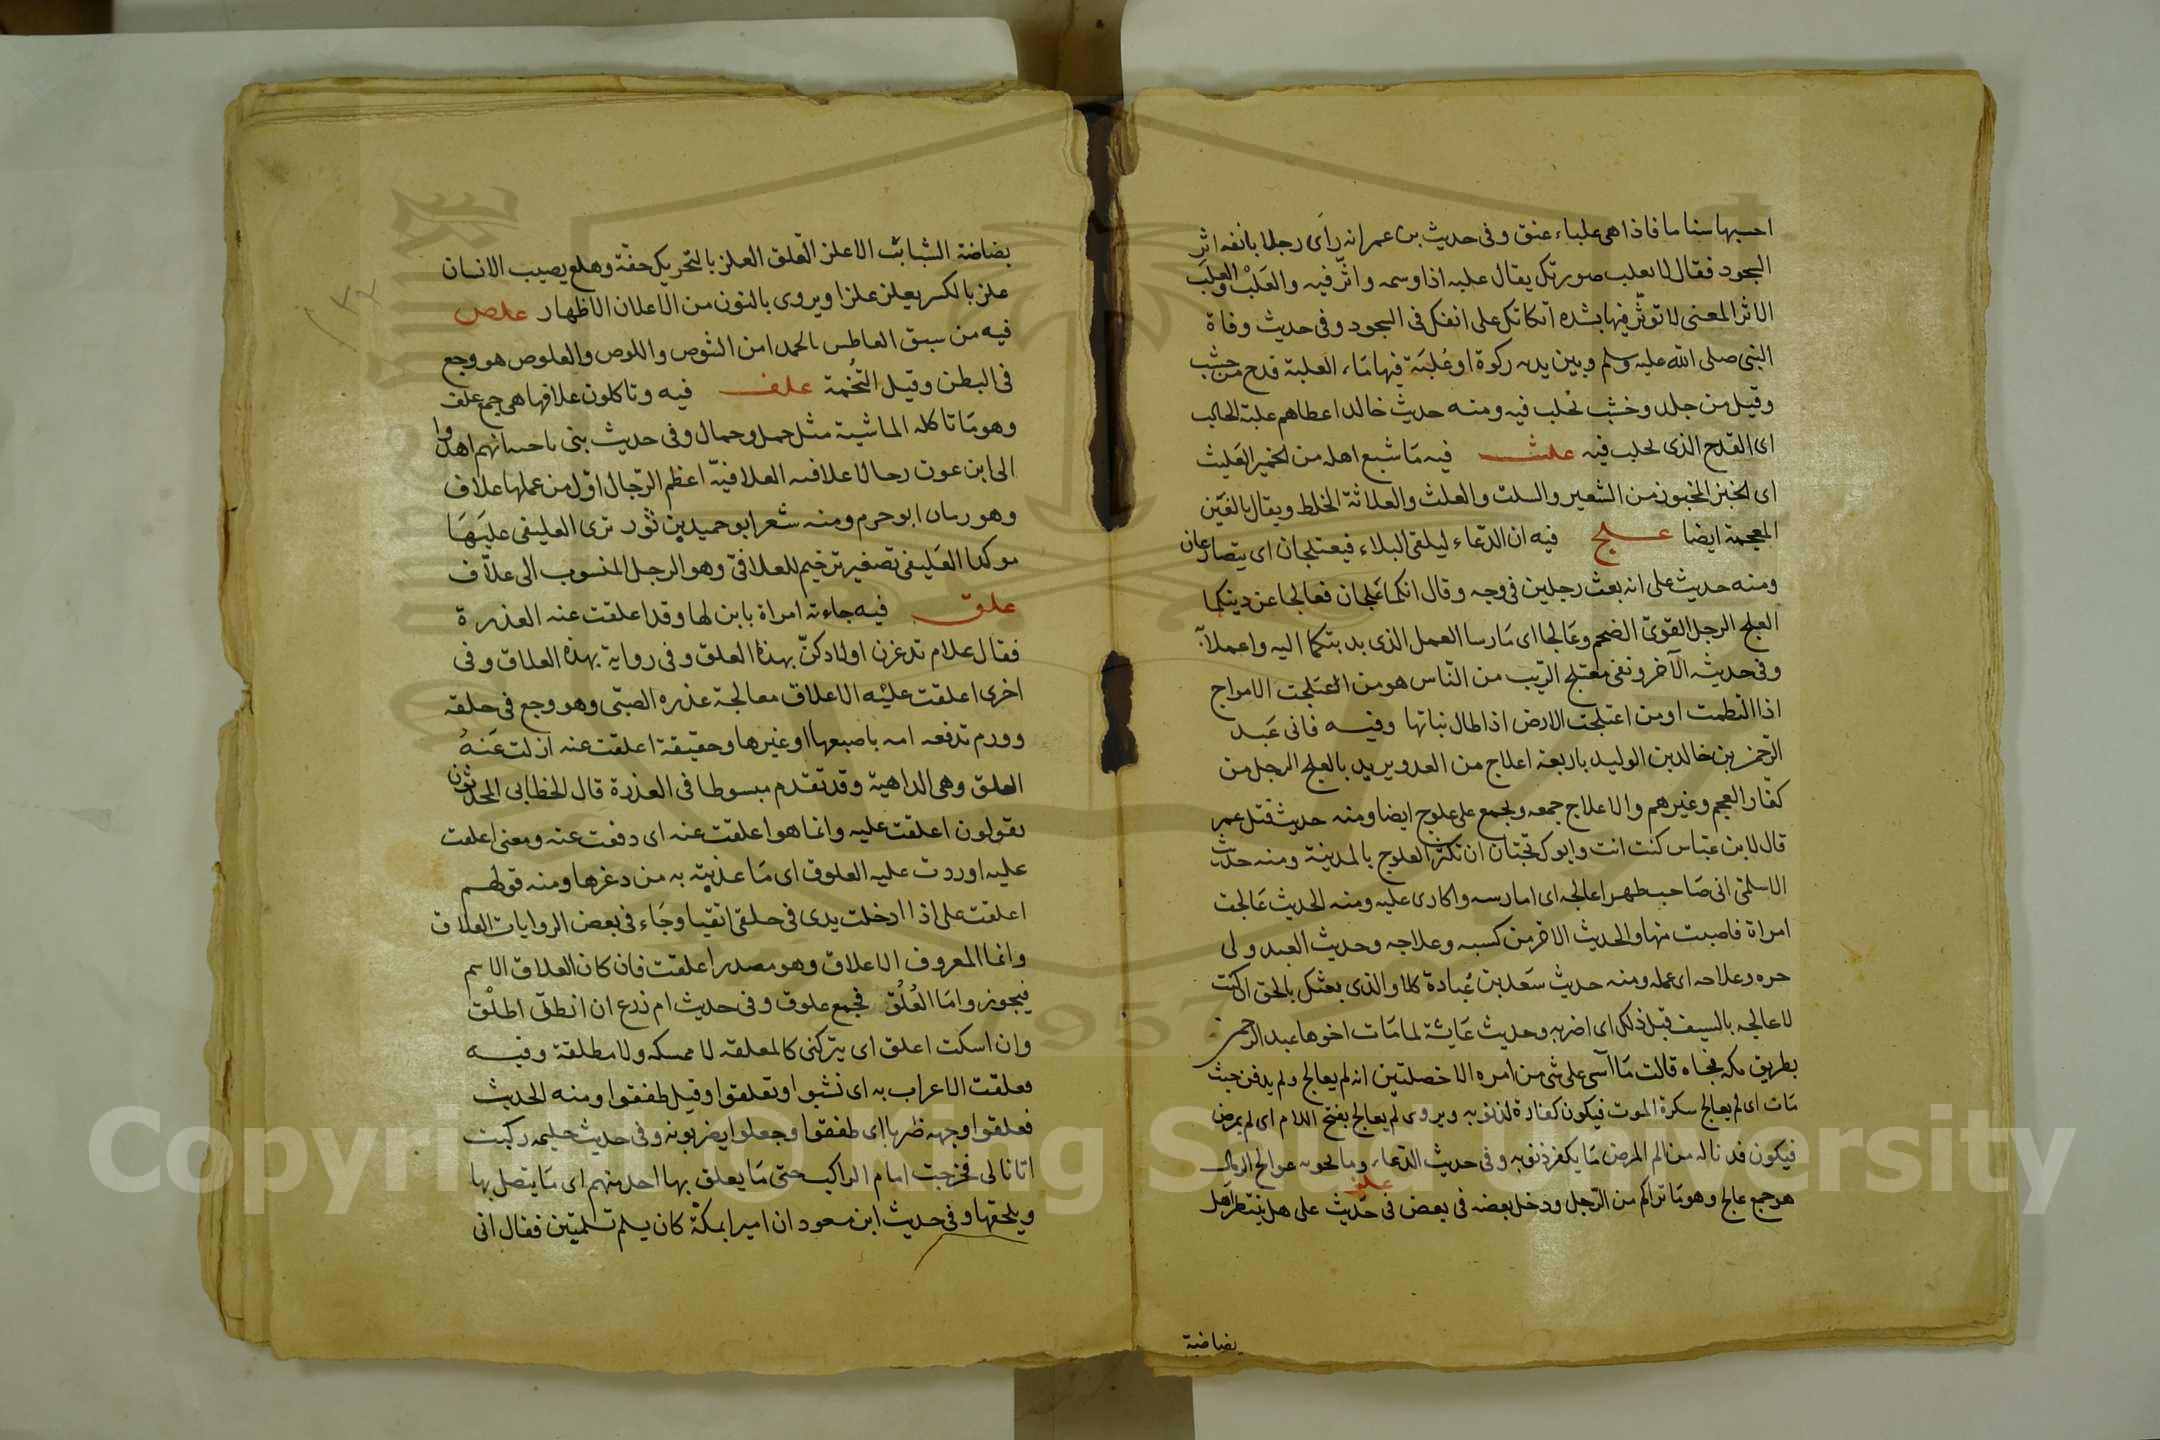 احسبها سناما فاذا هى علباء عنق وفى حديث بن عمر انه رأى رجلا بانفه اثر
السجود فقال لا تعلب صورتك يقال علبه اذا وسمه واثّر فيه والعَلْب والعلَب
الاثر المعنى لا توثّر فيها بشده اتكاتك على انفك فى السجود وفى حديث وفاة
النبى صلى الله عليه وسلم وبين يديه ركوة او عُلبَة فيها مَاء العلبة قدح من خشب
وقيل من جلد وخشب تحلب فيه ومنه حديث خالد اعطاهم علبة الحالب
اى القدح الذى تحلب فيه علث فيه مَا شبع اهله من الخمير العَليث
اى الخبز المخبوز من الشعير والسلت والعلث والعلاثة الخلط ويقال بالغَين
المعجمة ايضا علج فيه ان الدّعاء ليلقى البلاء فيعتلجان اى يتصارعان
ومنه حديث على انه بعث رجلين فى وجه وقال انكما عَلجان فعالجا عن دينكما
العلج الرجل القوىّ الضخم وعَالجا اى مَارسا العمل الذى ندبتكما اليه واعملا به
وفى حديثه الآخر ونفى معتلج الرّيب من النّاس هو من اعتَلجت الامواج
اذا التطمت او من اعتلجت الارض اذا طال نباتها وفيه فاتى عَبد
الرّحمن بن خالد بن الوليد باربعة اعلاج من العدو يريد بالعلج الرجل من
كفّار العجم وغيرهم والاعلاج جمعه ويجمع على علوج ايضا ومنه حديث قتل عمر
قال لابن عبّاس كنت انت وابوك تحبّان ان تكثر العلوج بالمدينة ومنه حديث
الاسلمّى انى صَاحب ظهر اعالجه اى امارسه واكارى عليه ومنه الحديث عَالجت
امراة فاصبت منها والحديث الاخر من كسبه وعلاجه وحديث العبد ولى
حره وعلاجه اى عمله ومنه حديث سَعد بن عُبادة كلا والذى بعثك بالحق ان كنت
لاعالجه بالسيف قبل ذلك اى اضربه وحديث عَايشة لما مَات اخوها عبد الرحمن
بطريق مكه فجاه قالت مَا آسى على شئ من امره الا خصلتين انه لم يعالج ولم يدفن حيث
مَات اى لم يعالج سكرة الموت فيكون كفارة لذنوبه ويروى لم يعالج بفتح اللام اى لم يمرض
فيكون قد ناله من الم المرض مَا يكفر ذنوبه وفى حديث الدّعاء وما تحويه عوالج الرمال
هو جمع عالج وهو مَا تراكم من الرّمل ودخل بعضه فى بعض علز فى حديث على هل ينتظر اهل
بضاضة
بضاضة الشباب الا علز القلق العلز بالتحريك خفة وهلع يصيب الانسان
علز بالكسر يعلز علزا ويروى بالنون من الاعلان الاظهار علص
فيه من سبق العاطس بالحمد امن الشوص واللوص والعلوص هو وجع
فى البطن وقيل التُخمة علف فيه وتاكلون علافها هى جمع علف
وهو مَا تاكله الماشية مثل جمل وجمال وفى حديث بنى ناجية انهم اهدوا
الى ابن عوف رحالا علافيه العلافيّة اعظم الرّحال اوّل من عملها علاف
وهو ربان ابو جرم ومنه شعر ابو حميد بن ثور ترى العليفى عليَهَا
موكدا العَليفى تصغير ترخيم للعلافىّ وهو الرجل المنسوب الى علاّف
علق فيه جاءته امراة بابن لها وقد اعلقت عنه العذرة
فقال علام تدغرن اولادكنّ بهذا العلق وفى رواية بهذه العلاق وفى
اخرى اعلقت عليْه الاعلاق معالجة عذره الصبّى وهو وجع فى حلقه
وورم تدفعه امه باصبعها او غيرها وحقيقة اعلقت عنه ازلت عَنهُ
العلق وهى الداهية وقد تقدم مبسوطا فى العذرة قال الخطابى المحدثون
يقولون اعلقت عليه وانما هو اعلقت عنه اى دفعت عنه ومعنى اعلقت
عليه اوردت عليه العلوق اى مَا عذبته به من دغرها ومنه قولهم
اعلقت على اذا ادخلت يدى فى حلقى اتقيا وجَاء فى بعض الروايات العلاق
وانما المعروف الاعلاق وهو مصدر اعلقت فان كان العلاق الاسم
فيجوز وامَا العُلُق فجمع علوق وفى حديث ام زرع ان انطق اطلْق
وان اسكت اعلق اى يتركنى كالمعلقه لا ممسكه ولا مطلقة وفيه
فعلقت الاعراب به اى نشبوا وتعلقوا وقيل طفقوا ومنه الحديث
فعلقوا وجهه ضربا اى طفقوا وجعلوا يضربونه وفى حديث حليمه ركبت
اتانا لى فخرجت امام الراكب حتى مَا يعلق بها احد منهم اى مَا يتصل بها
ويلحقها وفى حديث ابن مسعود ان اميرا بمكّة كان يسلم تسلمتين فقال انى
Copyright © King Saud University
1957